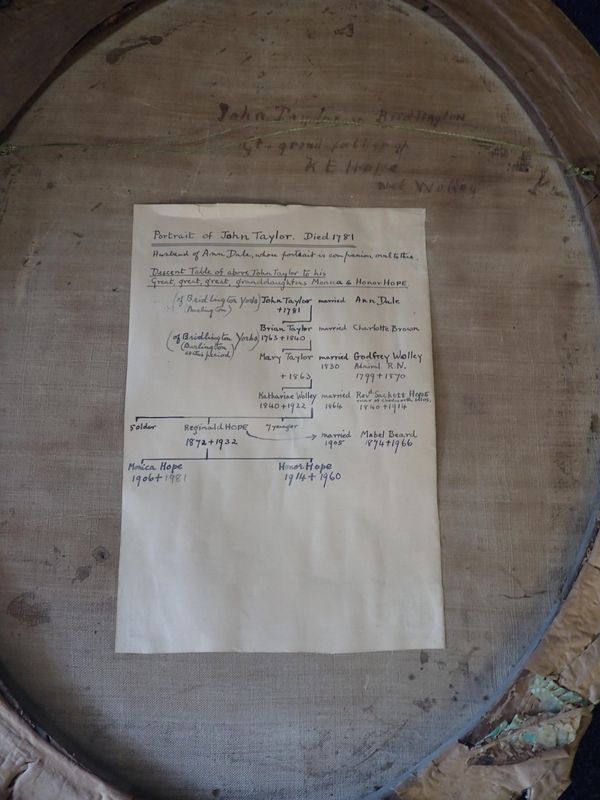 John Taylor of Bridlington
Gt. grand-father of
K E Hope
née Wolley
Portrait of John Taylor. Died 1781
Husband of Ann Dale, whose portrait is companion oval to this.
Descent Table of above John Taylor to his
Great, great, great, granddaughters Monica & Honor Hope.
(of Bridlington Yorks) John Taylor married Ann Dale
(Burlington) +1781
Brian Taylor married Charlotte Brown
(of Bridlington Yorks) 1763+1840
(Burlington at this period)
Mary Taylor married Godfrey Wolley
1830 Admiral R.N.
+1863 1799+1870
Katharine Wolley married Revd Sackett Hope
1840+1922 1864 1840+1914
5 older Reginald Hope 7 younger
married Mabel Beard
1872+1932 1905 1874+1966
Monica Hope Honor Hope
1906+1981 1914+1960